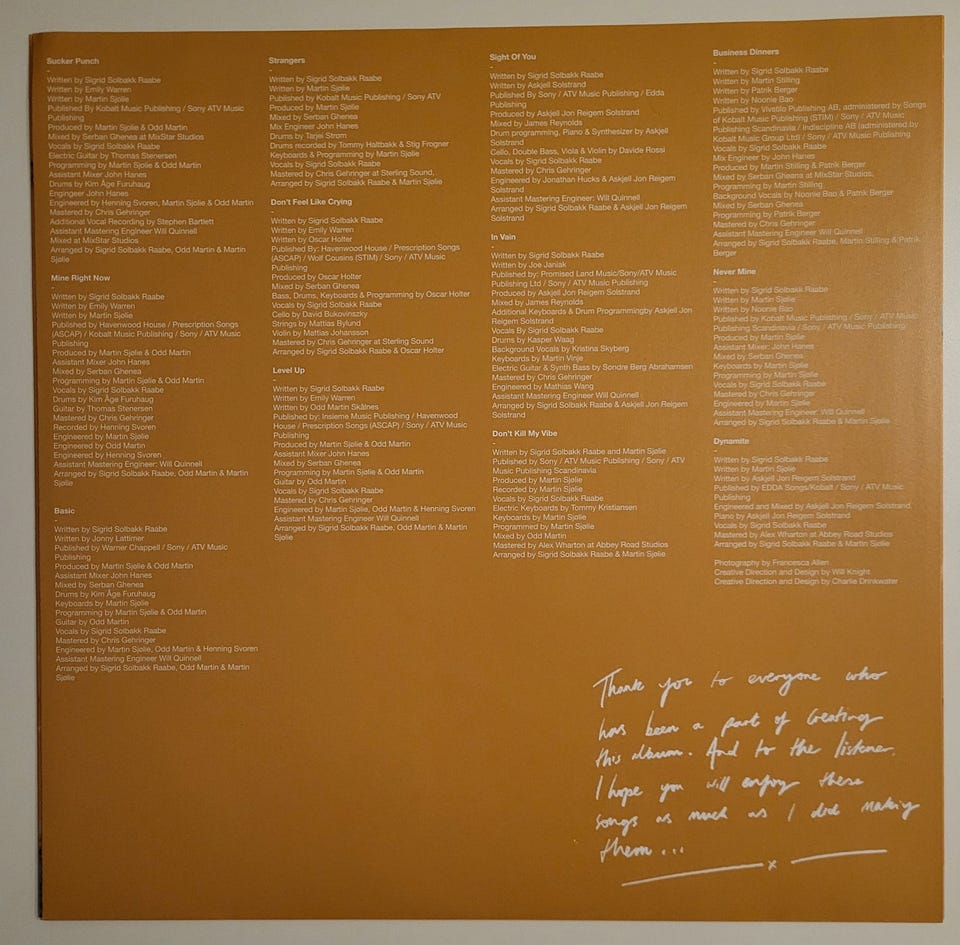 Sucker Punch
-
Written by Sigrid Solbakk Raabe
Written by Emily Warren
Written by Martin Sjølie
Published By Kobalt Music Publishing / Sony ATV Music
Publishing
Produced by Martin Sjølie & Odd Martin
Mixed by Serban Ghenea at MixStar Studios
Vocals by Sigrid Solbakk Raabe
Electric Guitar by Thomas Stenersen
Programming by Martin Sjølie & Odd Martin
Assistant Mixer John Hanes
Drums by Kim Åge Furuhaug
Engingeer John Hanes
Engineered by Henning Svoren, Martin Sjølie & Odd Martin
Mastered by Chris Gehringer
Additional Vocal Recording by Stephen Bartlett
Assistant Mastering Engineer Will Quinnell
Mixed at MixStar Studios
Arranged by Sigrid Solbakk Raabe, Odd Martin & Martin
Sjølie
Mine Right Now
-
Written by Sigrid Solbakk Raabe
Written by Emily Warren
Written by Martin Sjølie
Published by Havenwood House / Prescription Songs
(ASCAP) / Kobalt Music Publishing / Sony / ATV Music
Publishing
Produced by Martin Sjølie & Odd Martin
Assistant Mixer John Hanes
Mixed by Serban Ghenea
Programming by Martin Sjølie & Odd Martin
Vocals by Sigrid Solbakk Raabe
Drums by Kim Åge Furuhaug
Guitar by Thomas Stenersen
Mastered by Chris Gehringer
Recorded by Henning Svoren
Engineered by Martin Sjølie
Engineered by Odd Martin
Engineered by Henning Svoren
Assistant Mastering Engineer: Will Quinnell
Arranged by Sigrid Solbakk Raabe, Odd Martin & Martin
Sjølie
Basic
-
Written by Sigrid Solbakk Raabe
Written by Jonny Lattimer
Published by Warner Chappell / Sony / ATV Music
Publishing
Produced by Martin Sjølie & Odd Martin
Assistant Mixer John Hanes
Mixed by Serban Ghenea
Drums by Kim Åge Furuhaug
Keyboards by Martin Sjølie
Programming by Martin Sjølie & Odd Martin
Guitar by Odd Martin
Vocals by Sigrid Solbakk Raabe
Mastered by Chris Gehringer
Engineered by Martin Sjølie, Odd Martin & Henning Svoren
Assistant Mastering Engineer Will Quinnell
Arranged by Sigrid Solbakk Raabe, Odd Martin & Martin
Sjølie
Strangers
-
Written by Sigrid Solbakk Raabe
Written by Martin Sjølie
Published by Kobalt Music Publishing / Sony ATV
Produced by Martin Sjølie
Mixed by Serban Ghenea
Mix Engineer John Hanes
Drums by Tarjei Strøm
Drums recorded by Tommy Haltbakk & Stig Frogner
Keyboards & Programming by Martin Sjølie
Vocals by Sigrid Solbakk Raabe
Mastered by Chris Gehringer at Sterling Sound,
Arranged by Sigrid Solbakk Raabe & Martin Sjølie
Don't Feel Like Crying
-
Written by Sigrid Solbakk Raabe
Written by Emily Warren
Written by Oscar Holter
Published By: Havenwood House / Prescription Songs
(ASCAP) / Wolf Cousins (STIM) / Sony / ATV Music
Publishing
Produced by Oscar Holter
Mixed by Serban Ghenea
Bass, Drums, Keyboards & Programming by Oscar Holter
Vocals by Sigrid Solbakk Raabe
Cello by David Bukovinszky
Strings by Mattias Bylund
Violin by Mattias Johansson
Mastered by Chris Gehringer at Sterling Sound
Arranged by Sigrid Solbakk Raabe & Oscar Holter
Level Up
-
Written by Sigrid Solbakk Raabe
Written by Emily Warren
Written by Odd Martin Skålnes
Published by: Insieme Music Publishing / Havenwood
House / Prescription Songs (ASCAP) / Sony / ATV Music
Publishing
Produced by Martin Sjølie & Odd Martin
Assistant Mixer John Hanes
Mixed by Serban Ghenea
Programming by Martin Sjølie & Odd Martin
Guitar by Odd Martin
Vocals by Sigrid Solbakk Raabe
Mastered by Chris Gehringer
Engineered by Martin Sjølie, Odd Martin & Henning Svoren
Assistant Mastering Engineer Will Quinnell
Arranged by Sigrid Solbakk Raabe, Odd Martin & Martin
Sjølie
Sight Of You
-
Written by Sigrid Solbakk Raabe
Written by Askjell Solstrand
Published By Sony / ATV Music Publishing / Edda
Publishing
Produced by Askjell Jon Reigem Solstrand
Mixed by James Reynolds
Drum programming, Piano & Synthesizer by Askjell
Solstrand
Cello, Double Bass, Viola & Violin by Davide Rossi
Vocals by Sigrid Solbakk Raabe
Mastered by Chris Gehringer
Engineered by Jonathan Hucks & Askjell Jon Reigem
Solstrand
Assistant Mastering Engineer: Will Quinnell
Arranged by Sigrid Solbakk Raabe & Askjell Jon Reigem
Solstrand
In Vain
-
Written by Sigrid Solbakk Raabe
Written by Joe Janiak
Published by: Promised Land Music/Sony/ATV Music
Publishing Ltd / Sony / ATV Music Publishing
Produced by Askjell Jon Reigem Solstrand
Mixed by James Reynolds
Additional Keyboards & Drum Programmingby Askjell Jon
Reigem Solstrand
Vocals By Sigrid Solbakk Raabe
Drums by Kasper Waag
Background Vocals by Kristina Skyberg
Keyboards by Martin Vinje
Electric Guitar & Synth Bass by Sondre Berg Abrahamsen
Mastered by Chris Gehringer
Engineered by Mathias Wang
Assistant Mastering Engineer Will Quinnell
Arranged by Sigrid Solbakk Raabe & Askjell Jon Reigem
Solstrand
Don't Kill My Vibe
-
Written by Sigrid Solbakk Raabe and Martin Sjølie
Published by Sony / ATV Music Publishing / Sony / ATV
Music Publishing Scandinavia
Produced by Martin Sjølie
Recorded by Martin Sjølie
Vocals by Sigrid Solbakk Raabe
Electric Keyboards by Tommy Kristiansen
Keyboards by Martin Sjølie
Programmed by Martin Sjølie
Mixed by Odd Martin
Mastered by Alex Wharton at Abbey Road Studios
Arranged by Sigrid Solbakk Raabe & Martin Sjølie
Business Dinners
-
Written by Sigrid Solbakk Raabe
Written by Martin Stilling
Written by Patrik Berger
Written by Noonie Bao
Published by Vivstilo Publishing AB, administered by Songs
of Kobalt Music Publishing (STIM) / Sony / ATV Music
Publishing Scandinavia / Indiscipline AB (administered by
Kobalt Music Group Ltd) / Sony / ATV Music Publishing
Vocals by Sigrid Solbakk Raabe
Mix Engineer by John Hanes
Produced by Martin Stilling & Patrik Berger
Mixed by Serban Gheana at MixStar Studios,
Programming by Martin Stilling
Background Vocals by Noonie Bao & Patrik Berger
Mixed by Serban Ghenea
Programming by Patrik Berger
Mastered by Chris Gehringer
Assistant Mastering Engineer Will Quinnell
Arranged by Sigrid Solbakk Raabe, Martin Stilling & Patrik
Berger
Never Mine
-
Written by Sigrid Solbakk Raabe
Written by Martin Sjølie
Written by Noonie Bao
Published by Kobalt Music Publishing / Sony / ATV Music
Publishing Scandinavia / Sony / ATV Music Publishing
Produced by Martin Sjølie
Assistant Mixer: John Hanes
Mixed by Serban Ghenea
Keyboards by Martin Sjølie
Programming by Martin Sjølie
Vocals by Sigrid Solbakk Raabe
Mastered by Chris Gehringer
Engineered by Martin Sjølie
Assistant Mastering Engineer: Will Quinnell
Arranged by Sigrid Solbakk Raabe & Martin Sjølie
Dynamite
-
Written by Sigrid Solbakk Raabe
Written by Martin Sjølie
Written by Askjell Jon Reigem Solstrand
Published by EDDA Songs/Kobalt / Sony / ATV Music
Publishing
Engineered and Mixed by Askjell Jon Reigem Solstrand
Piano by Askjell Jon Reigem Solstrand
Vocals by Sigrid Solbakk Raabe
Mastered by Alex Wharton at Abbey Road Studios
Arranged by Sigrid Solbakk Raabe & Martin Sjølie
Photography by Francesca Allen
Creative Direction and Design by Will Knight
Creative Direction and Design by Charlie Drinkwater
Thank you to everyone who
has been a part of creating
this album. And to the listener.
I hope you will enjoy these
songs as much as I did making
them...
x